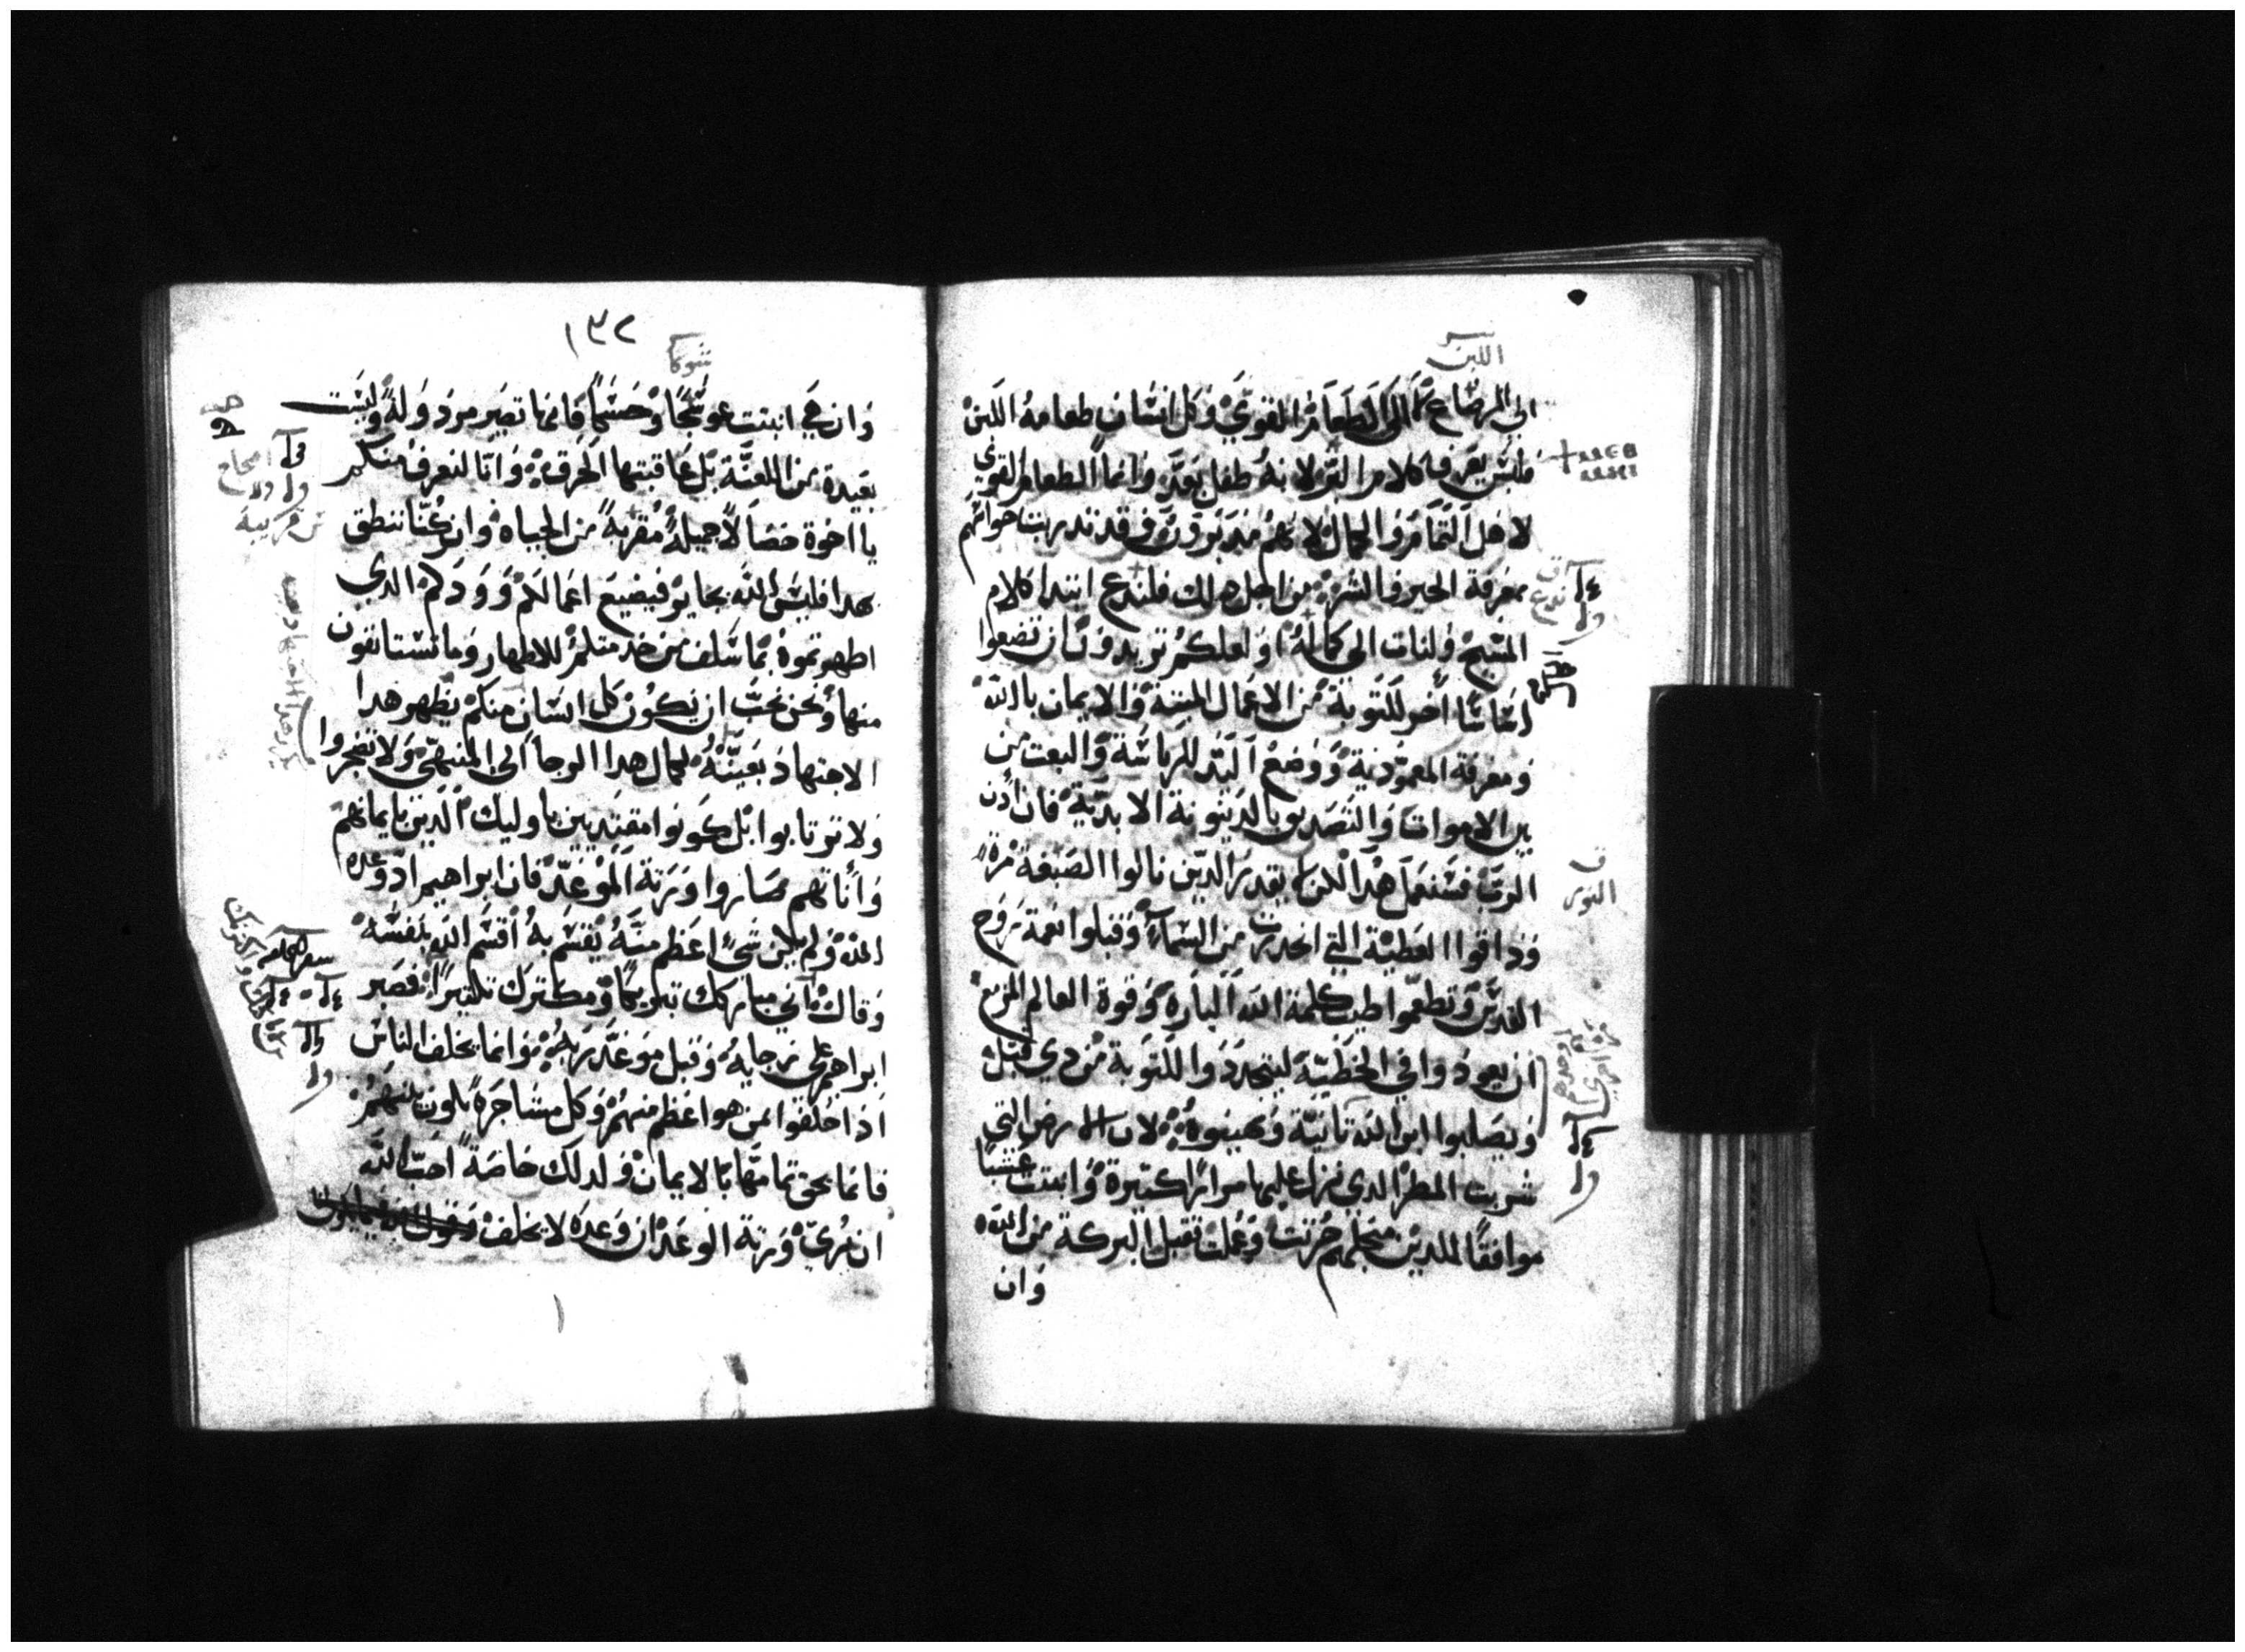 اللبن
الى الرضاع لا الى الطعام القوي وكل انسان طعامه اللبن
فليس يعرف كلام البر لانه طفل بعد وانما الطعام القوي
لاهل التمام والكمال لانهم قد تدربت حواسهم
بمعرفة الخير والشر من اجل هدا لك فلندع ابتدا كلام
المسيح ولنات الى كماله او لعلكم تريدون ان تضعوا
اساسا اخر للتوبة من الاعمال الميتة والايمان بالله
ومعرفة المعمودية ووضع اليد للرياسة والبعث من
بين الاموات والتصديق بالدينونة الابدية فان ادن
الرب فسنعمل هدا لكن ليقدر الدين نالوا الصبغة مرة
وداقوا العطية التي انحدرت من السماء وقبلوا نعمة روح
القدس وتطعموا طيب كلمة الله البارة وقوة العالم المزمع
ان يعودوا في الخطية ليتجددوا للتوبة من دي قبل
ويصلبوا ابن الله تانية ويهينوه لان الارض التي
شربت المطر الدي نزل عليها مرارا كتيرة وانبتت عشبا
موافقا للدين من اجلهم حرتت وعملت تقبل البركة من الله
وان
١٣٢
شوكا
وان هي انبتت عوسجا وحسكا فانها تصير مردوله وليست
بعيدة من اللعنة بل عاقبتها الحرق وانا لنعرف منكم
يا اخوة خصالا جميلة مقربة من الحياه وان كنا ننطق
بهدا فليس الله بجاير فيضيع اعمالكم وودكم الدي
اظهرتموه بما سلف من خدمتكم للاطهار وما تستانفون
منها ونحن نحب ان يكون كل انسان منكم يظهر هدا
الاجتهاد بعينه لكمال هدا الرجا الى المنتهى ولا تضجروا
ولا ترتابوا بل كونوا مقتديين باوليك الدين بايمانهم
واناتهم صاروا ورتة الموعد فان ابراهيم اد وعده
الله ولم يكن شي اعظم منه يقسم به اقسم الله بنفسه
وقال اني مباركك تبريكا ومكترك تكتيرا فصبر
ابراهيم على رجايه وقبل موعد ربه وانما يحلف الناس
ادا حلفوا بمن هو اعظم منهم وكل مشاجرة تكون بينهم
فانما يحق تمامها بالايمان ولدلك خاصة احب الله
ان يري ورتة الوعد ان وعده لا يخلف